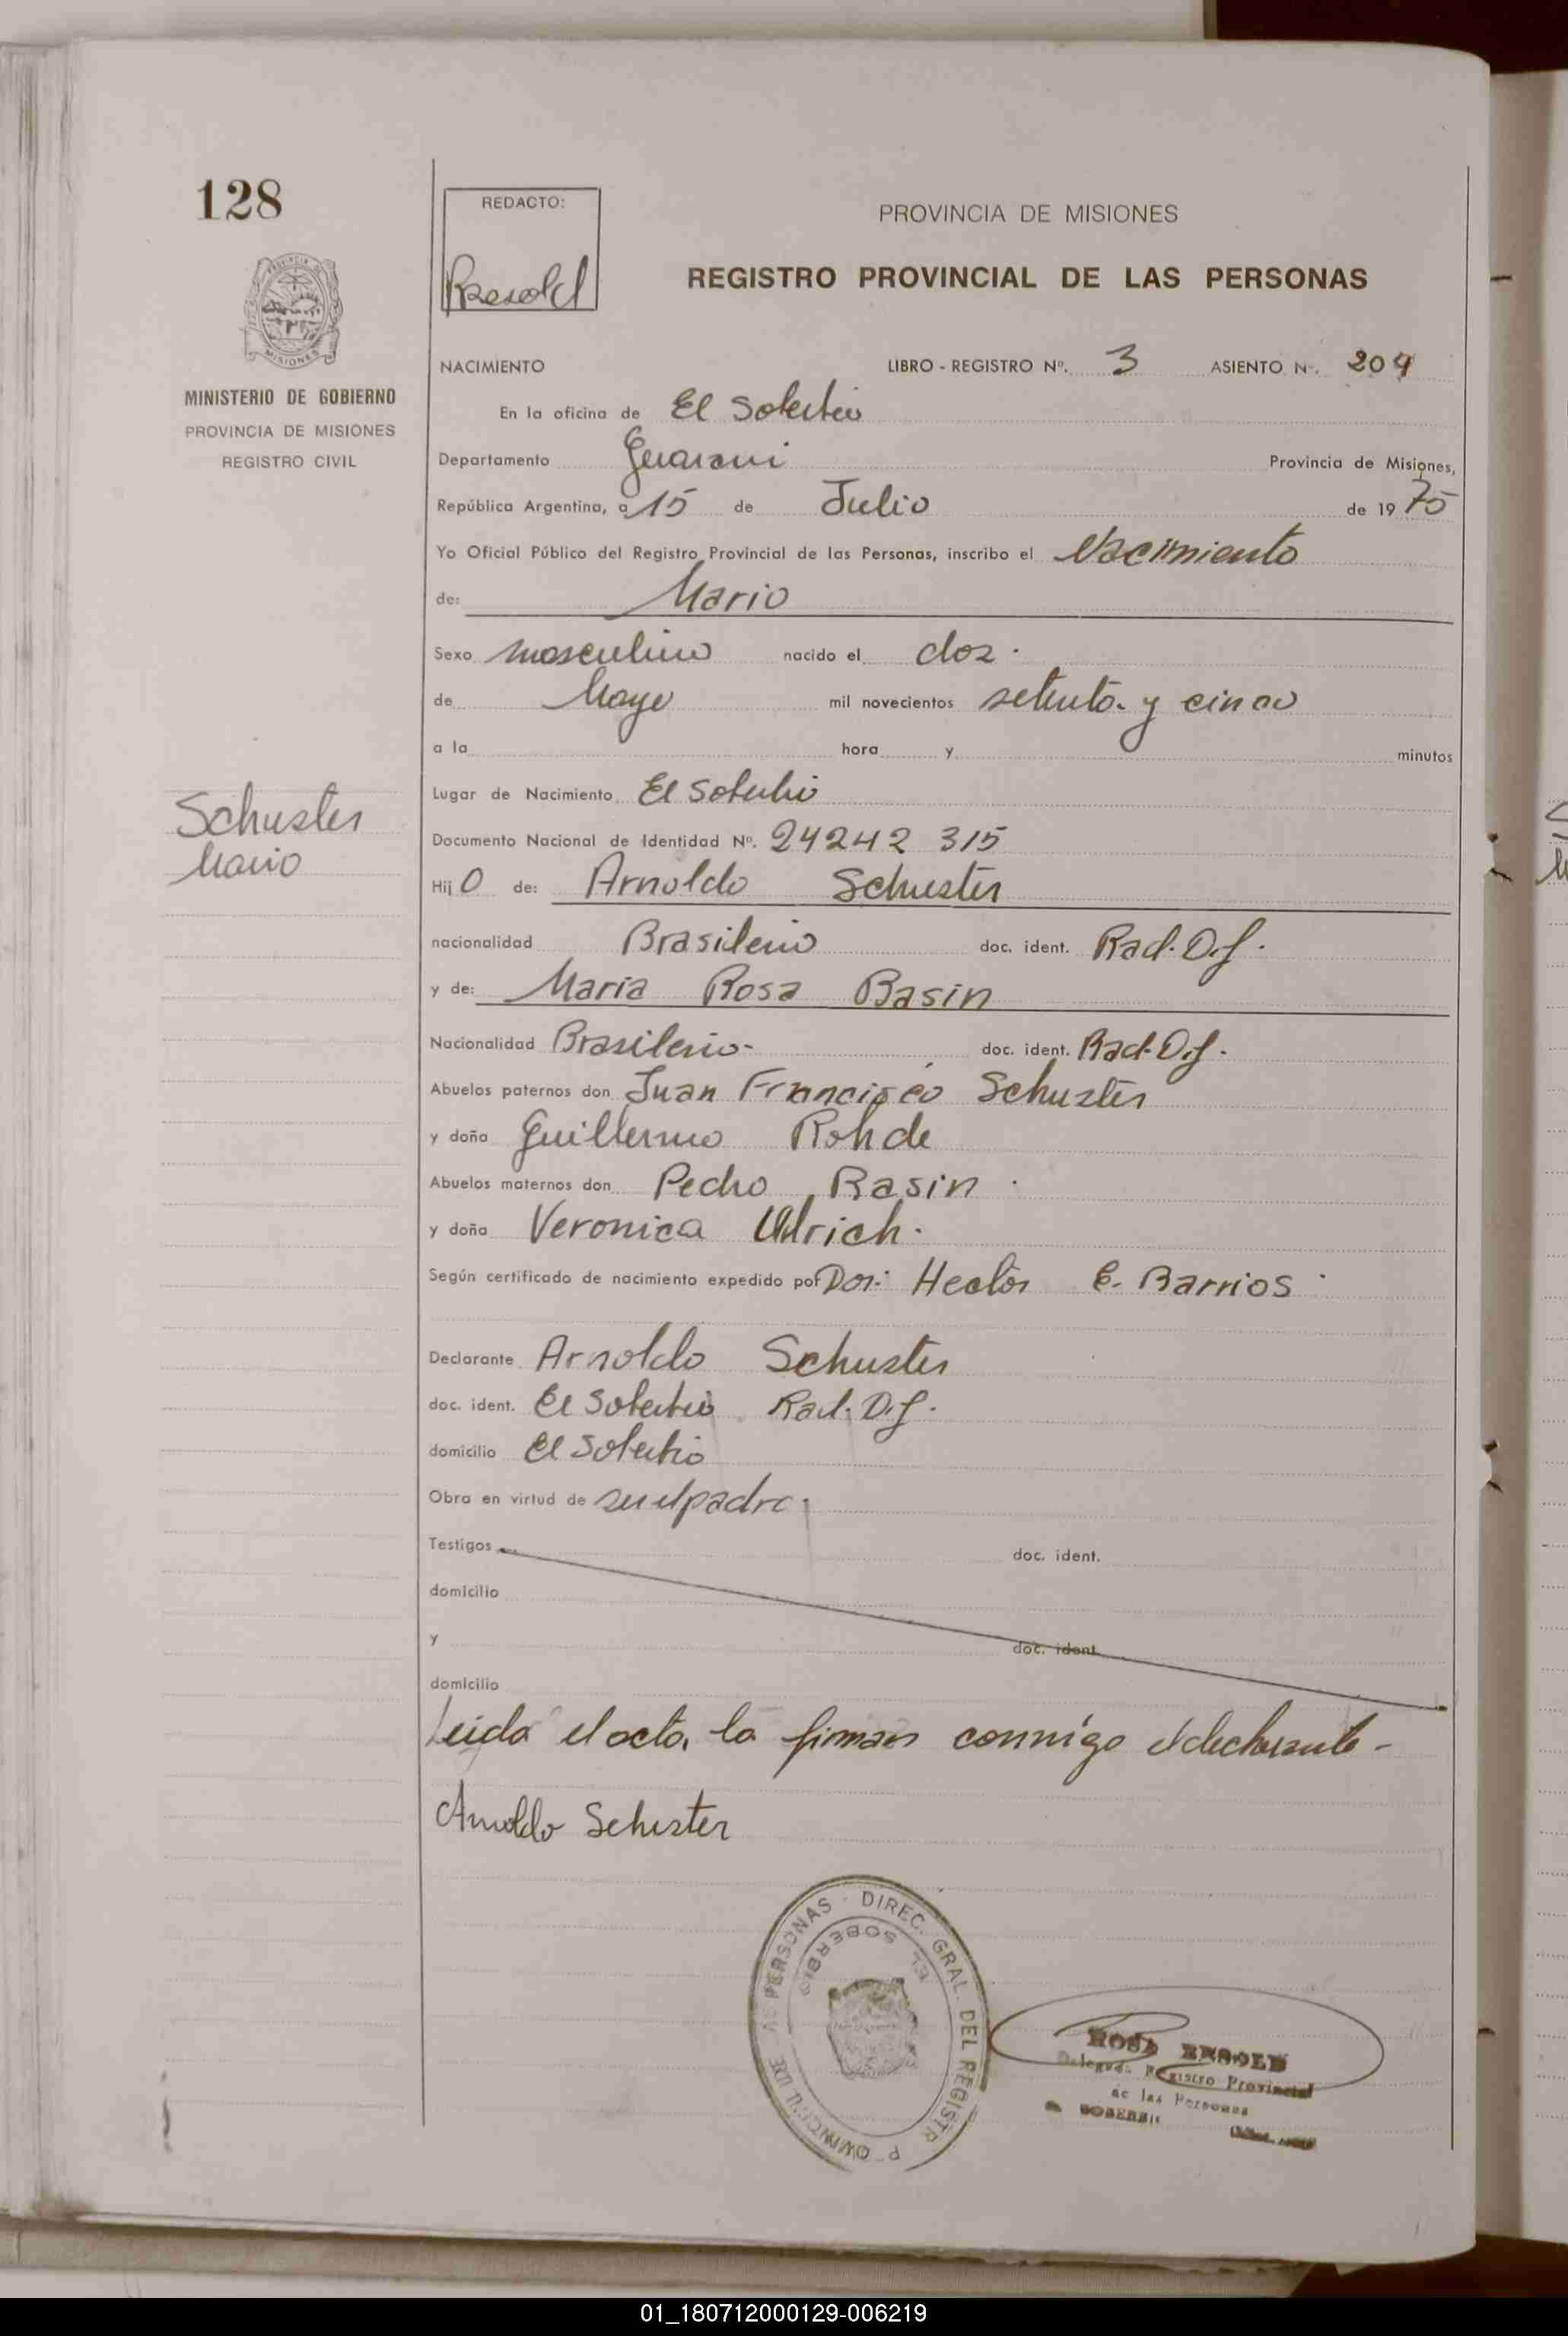 128
REDACTO:
PROVINCIA DE MISIONES
REGISTRO PROVINCIAL DE LAS PERSONAS
MISIONES
MINISTERIO DE GOBIERNO
PROVINCIA DE MISIONES
REGISTRO CIVIL
NACIMIENTO LIBRO - REGISTRO Nº. 3 ASIENTO Nº. 204
En la oficina de El Soberbio
Departamento Guarani Provincia de Misiones,
República Argentina, a 15 de Julio de 1975
Yo Oficial Público del Registro Provincial de las Personas, inscribo el Nacimiento
de: Mario
Sexo masculino nacido el dos.
de Mayo mil novecientos setenta y cinco
a la hora y minutos
Lugar de Nacimiento El Soberbio
Schuster
Mario
Documento Nacional de Identidad Nº. 24242 315
Hijo de: Arnoldo Schuster
nacionalidad Brasilerio doc. ident. Rad. D.f.
y de: Maria Rosa Basin
Nacionalidad Brasilerio- doc. ident. Rad. D.f.
Abuelos paternos don Juan Francisco Schuster
y doña Guillermo Rohde
Abuelos maternos don Pedro Basin.
y doña Veronica Ulrich.
Según certificado de nacimiento expedido por Dor: Hector E. Barrios.
Declarante Arnoldo Schuster
doc. ident. El Soberbio Rad. D.f.
domicilio El Soberbio
Obra en virtud de ser el padre.
Testigos doc. ident.
domicilio
y doc. ident.
domicilio
Leida el acta, la firman conmigo el declarante-
Arnoldo Schuster
DIREC. GRAL. DEL REGISTR. PROVINCIAL DE LAS PERSONAS
EL SOBERBIO
ROSA
Registro Provincial
de las Personas
SOBERBIO
01_180712000129-006219